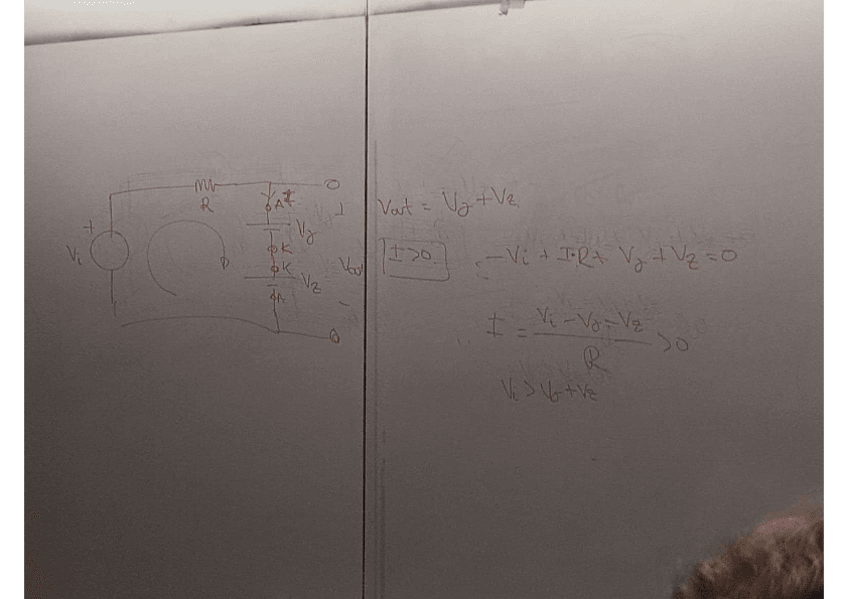 R
A I
+
Vi
Vγ
K
K
Vout
Vz
A
-
Vout = Vγ + Vz
I>0
-Vi + I·R + Vγ + Vz = 0
I = (Vi - Vγ - Vz) / R > 0
Vi > Vγ + Vz